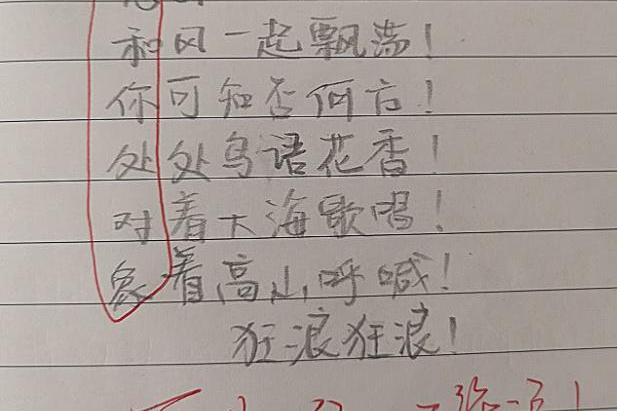 和风一起飘荡！
你可知否何方！
处处鸟语花香！
对着大海歌唱！
象着高山呼喊！
狂浪狂浪！